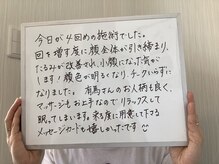 今日が4回めの施術でした。
回を増す度に腹全体が引き締まり、
たるみが改善され、小腹になった気が
します!顔色が明るくなり、チークいらずに
なりました。有馬さんのお人柄も良く、
マッサージもお上手なのでリラックスして
眠ってしまいます。来る度に用意して下さる
メッセージカードも嬉しかったです😊